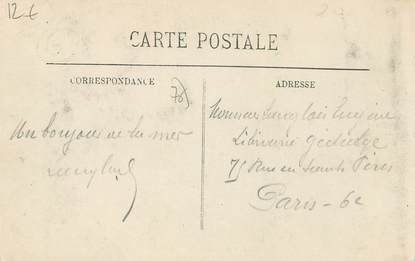 12 €
CARTE POSTALE
CORRESPONDANCE
78
ADRESSE
Un bonjour de la mer
Monsieur Langlois Eugène
Librairie
75 Rue des Saints Pères
Paris - 6e